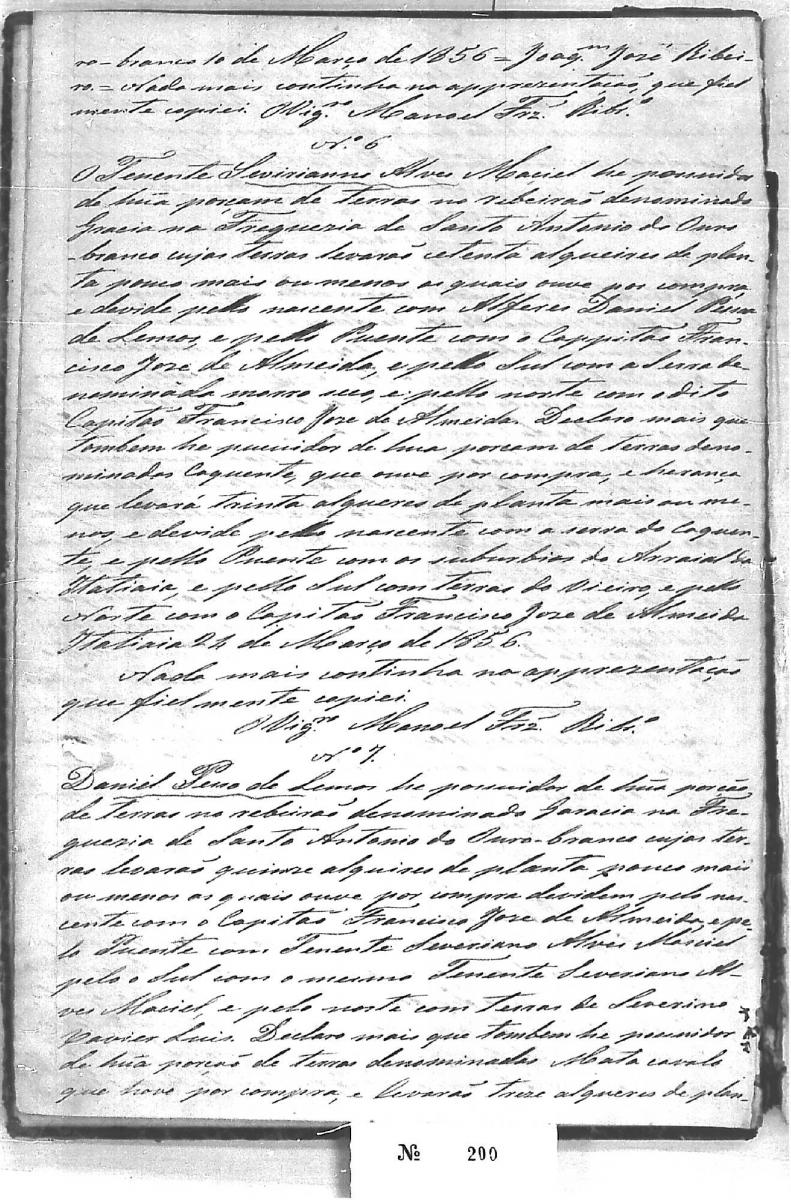 ro-branco 10 de Março de 1856 = Joaq.m José Ribei-
ro. = Nada mais continha na apprezentação, que fiel
mente copiei. O Vig.ro Manoel Frz. Ribr.o
N.o 6
O Tenente Severianno Alves Maciel he possuidor
de hũa porçam de terras no rebeirão denominado
Gracia na Freguezia de Santo Antonio do Ouro
-branco cujas terras levarão cetenta alqueires de plan-
ta pouco mais ou menos as quais ouve por compra,
e devide pello nascente com Alferes Daniel
de Lemos, e pello Puente com o Cappitão Fran-
cisco Joze de Almeida, e pello Sul com a Serra de-
nominada morro , e pello norte com o dito
Capitão Francisco Joze de Almeida. Declaro mais que
tombem he posuidor de hua porcam de terras deno-
minadas Coquente, que ouve por compra, e herança
que levará trinta alqueres de planta mais ou me-
nos, e devide pello nascente com a serra do Coquen-
te, e pello Puente com os suburbios do Arraial da
Itatiaia, e pello Sul com terras do Vieiro, e pello
Norte com o Capitão Francisco Joze de Almeida
Itatiaia 24 de Março de 1856.
Nada mais continha na apprezentação
que fielmente copiei.
O Vig.ro Manoel Frz. Ribr.o
N.o 7.
Daniel de Lemos he possuidor de hũa porção
de terras no rebeirão denominado Garacia na Fre-
guezia de Santo Antonio do Ouro-branco cujas ter-
ras levarão quinze alquires de planta pouco mais
ou menos as quais ouve por compra devidem pelo nas-
cente com o Capitão Francisco Joze de Almeida, e pe-
lo Puente com Tenente Severiano Alves Maciel
pelo o Sul com o mesmo Tenente Severiano Al-
ves Maciel, e pelo norte com terras de Severino
Xavier Luis. Declaro mais que tombem he posuidor
de hũa porcão de terras denominadas Mata cavalo
que hove por compra, e levarão treze alqueres de plan-
№ 200